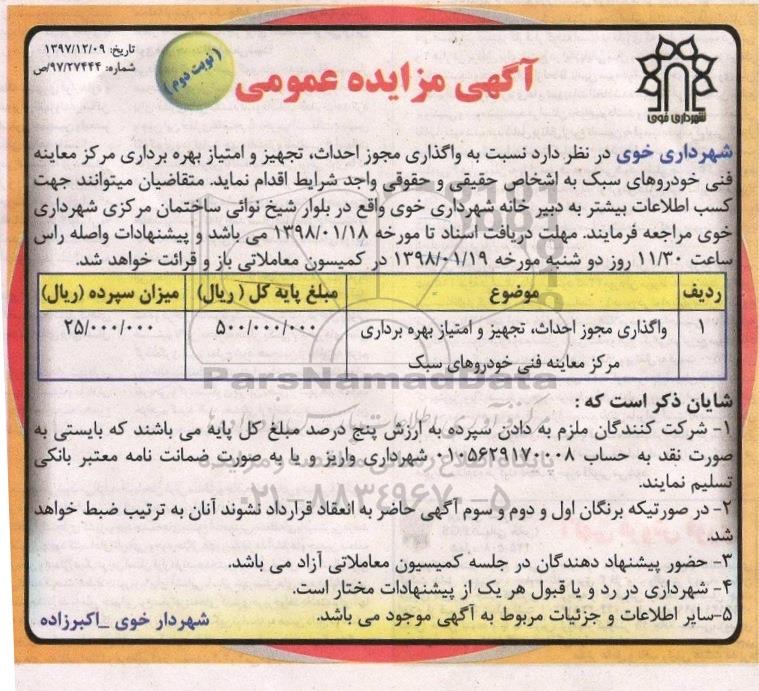 تاریخ: ۱۳۹۷/۱۲/۰۹
شماره: ۹۷/۲۷۴۴۴/ص
(نوبت دوم)
آگهی مزایده عمومی
شهرداری خوی
شهرداری خوی در نظر دارد نسبت به واگذاری مجوز احداث، تجهیز و امتیاز بهره برداری مرکز معاینه
فنی خودروهای سبک به اشخاص حقیقی و حقوقی واجد شرایط اقدام نماید. متقاضیان میتوانند جهت
کسب اطلاعات بیشتر به دبیر خانه شهرداری خوی واقع در بلوار شیخ نوائی ساختمان مرکزی شهرداری
خوی مراجعه فرمایند. مهلت دریافت اسناد تا مورخه ۱۳۹۸/۰۱/۱۸ می باشد و پیشنهادات واصله راس
ساعت ۱۱/۳۰ روز دو شنبه مورخه ۱۳۹۸/۰۱/۱۹ در کمیسون معاملاتی باز و قرائت خواهد شد.
ردیف موضوع مبلغ پایه کل ( ریال) میزان سپرده (ریال)
۱ واگذاری مجوز احداث، تجهیز و امتیاز بهره برداری ۵۰۰/۰۰۰/۰۰۰ ۲۵/۰۰۰/۰۰۰
مرکز معاینه فنی خودروهای سبک
ParsNamadData
شایان ذکر است که :
۱- شرکت کنندگان ملزم به دادن سپرده به ارزش پنج درصد مبلغ کل پایه می باشند که بایستی به
صورت نقد به حساب ۰۱۰۵۶۲۹۱۷۰۰۰۸ شهرداری واریز و یا به صورت ضمانت نامه معتبر بانکی
تسلیم نمایند.
۰۲۱-۸۸۳۴۹۶۷۰-۵
۲- در صورتیکه برنگان اول و دوم و سوم آگهی حاضر به انعقاد قرارداد نشوند آنان به ترتیب ضبط خواهد
شد.
۳- حضور پیشنهاد دهندگان در جلسه کمیسیون معاملاتی آزاد می باشد.
۴- شهرداری در رد و یا قبول هر یک از پیشنهادات مختار است.
۵-سایر اطلاعات و جزئیات مربوط به آگهی موجود می باشد.
شهردار خوی _اکبرزاده